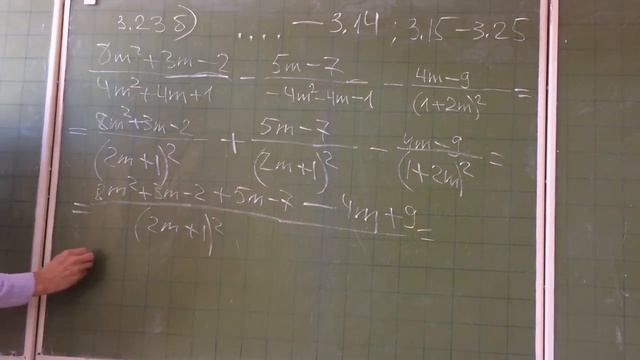 3.23 б) .... - 3.14 ; 3.15 - 3.25
(8m² + 3m - 2)/(4m² + 4m + 1) - (5m - 7)/(-4m² - 4m - 1) - (4m - 9)/(1 + 2m)² =
= (8m² + 3m - 2)/(2m + 1)² + (5m - 7)/(2m + 1)² - (4m - 9)/(1 + 2m)² =
= (8m² + 3m - 2 + 5m - 7 - 4m + 9)/(2m + 1)² =